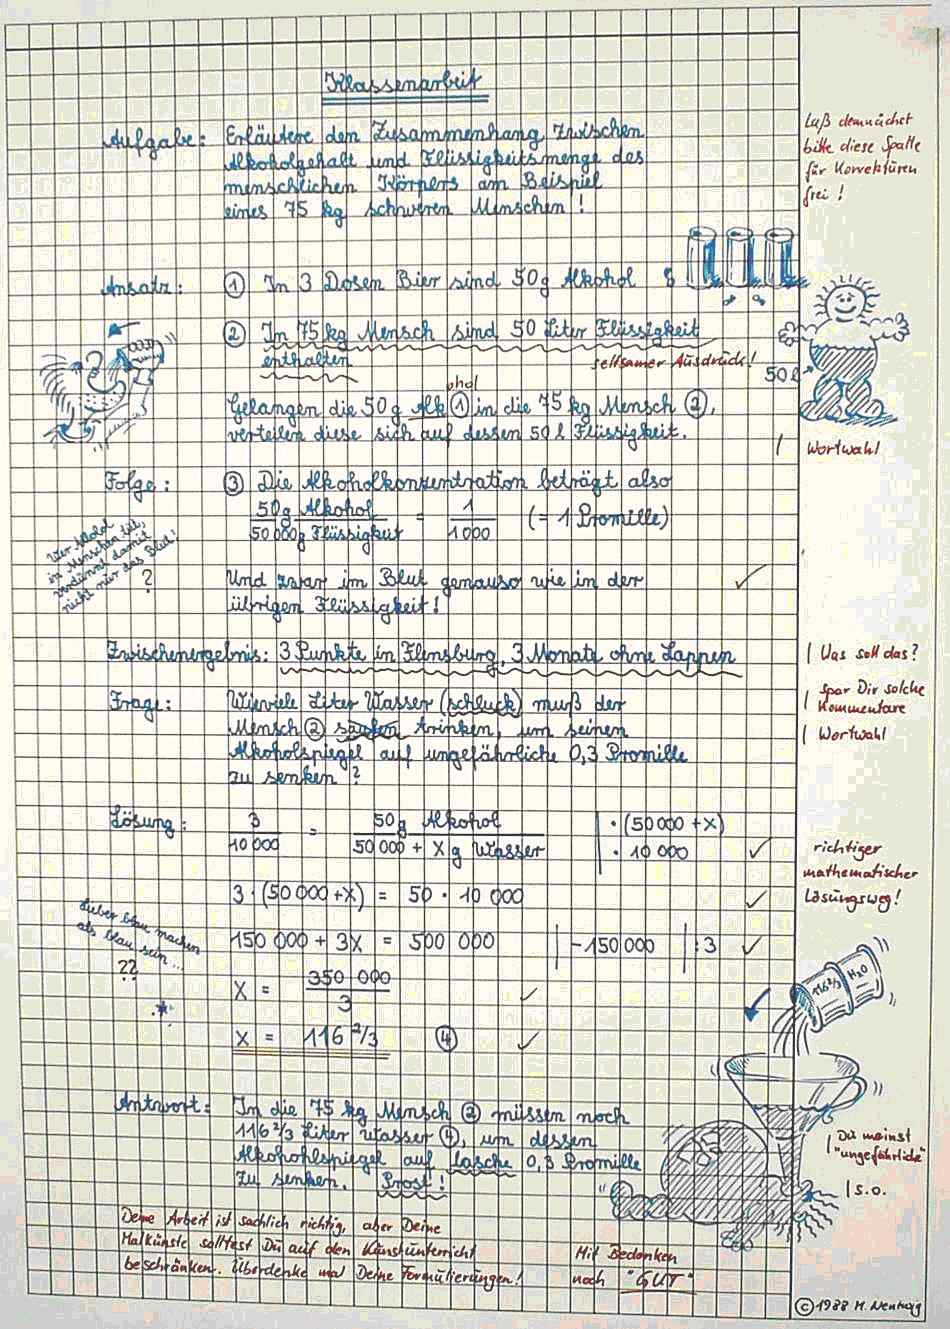 Klassenarbeit
Laß demnächst
bitte diese Spalte
für Korrekturen
frei !
Aufgabe: Erläutere den Zusammenhang zwischen
Alkoholgehalt und Flüssigkeitsmenge des
menschlichen Körpers am Beispiel
eines 75 kg schweren Menschen !
Ansatz: ① In 3 Dosen Bier sind 50g Alkohol
② In 75 kg Mensch sind 50 Liter Flüssigkeit
enthalten
seltsamer Ausdruck!
50 l
ohol
Gelangen die 50 g Alk ① in die 75 kg Mensch ②,
verteilen diese sich auf dessen 50 l Flüssigkeit.
| Wortwahl
Folge: ③ Die Alkoholkonzentration beträgt also
50g Alkohol / 50 000g Flüssigkeit = 1 / 1000 (= 1 Promille)
Wer Alohol
in Menschen tut,
verdünnt damit
nicht nur das Blut!
?
Und zwar im Blut genauso wie in der ✓
übrigen Flüssigkeit!
Zwischenergebnis: 3 Punkte in Flensburg, 3 Monate ohne Lappen
| Was soll das?
Frage: Wieviele Liter Wasser (schluck) muß der
| Spar Dir solche
Kommentare
Mensch ② saufen trinken, um seinen
| Wortwahl
Alkoholspiegel auf ungefährliche 0,3 Promille
zu senken ?
Lösung: 3 / 10 000 = 50g Alkohol / 50 000 + X g Wasser | · (50 000 + X) | · 10 000 ✓
richtiger
mathematischer
Lösungsweg!
3 · (50 000 + X) = 50 · 10 000 ✓
Lieber blau machen
als blau sein ...
??
150 000 + 3X = 500 000 | -150 000 | : 3 ✓
X = 350 000 / 3 ✓
X = 116 2/3 ④ ✓
116 2/3 H2O
Antwort: In die 75 kg Mensch ② müssen noch
116 2/3 Liter Wasser ④, um dessen
Alkohohlspiegel auf lasche 0,3 Promille
zu senken. Prost !
| Du meinst
"ungefährliche"
| s.o.
Deine Arbeit ist sachlich richtig, aber Deine
Malkünste solltest Du auf den Kunstunterricht
beschränken. Überdenke mal Deine Formulierungen!
Mit Bedenken
noch "GUT"
© 1988 M.